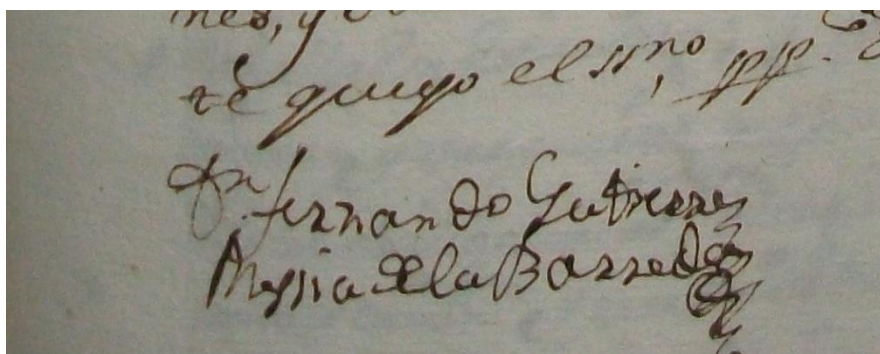 nes, y
te quigo el ssno, pp.
Dn fernando Gutierrez
Messia de la Barreda